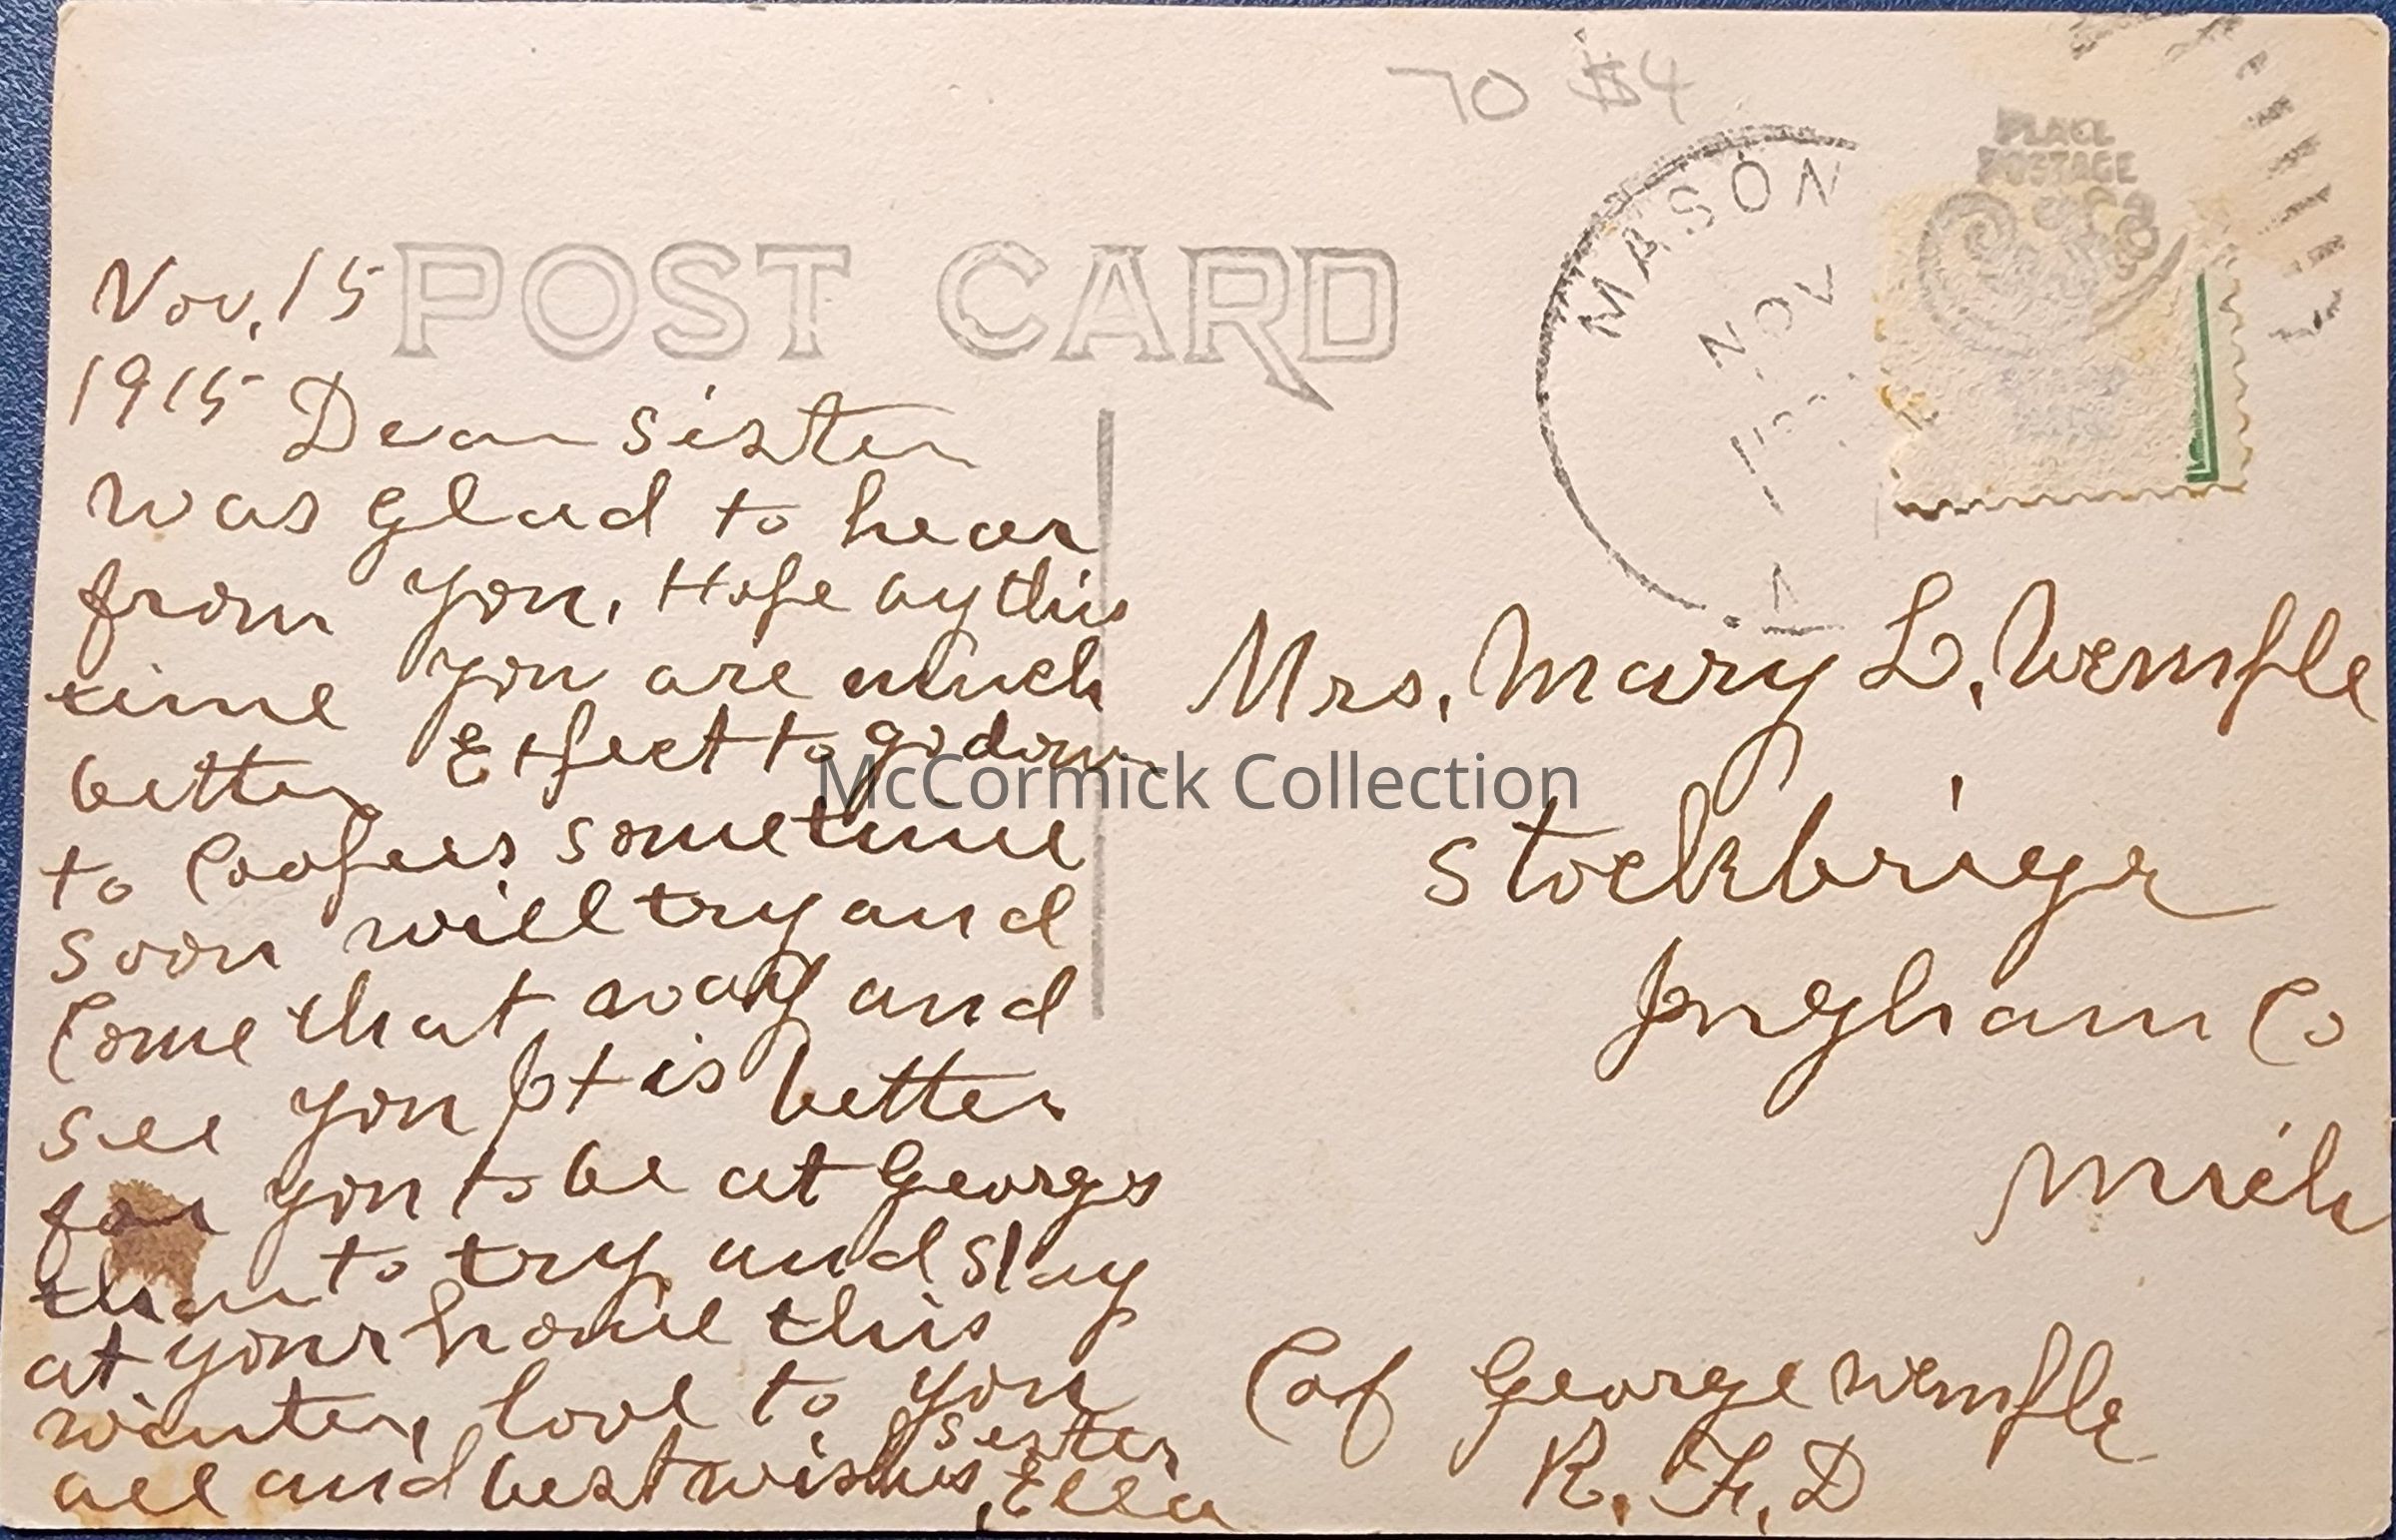 70 $4
PLACE
POSTAGE
MASON
NOV
POST CARD
Nov, 15
1915
Dear sister
was glad to hear
from you, Hope by this
time you are much
better Expect to go down
to Coopers sometime
soon will try and
Come that way and
see you It is better
for you to be at Georges
than to try and stay
at your home this
winter, love to you
all and best wishes,
sister
Ella
Mrs. Mary L. Wemple
Stockbrige
Ingham Co
Mich
C of George Wemple
R. F. D
McCormick Collection